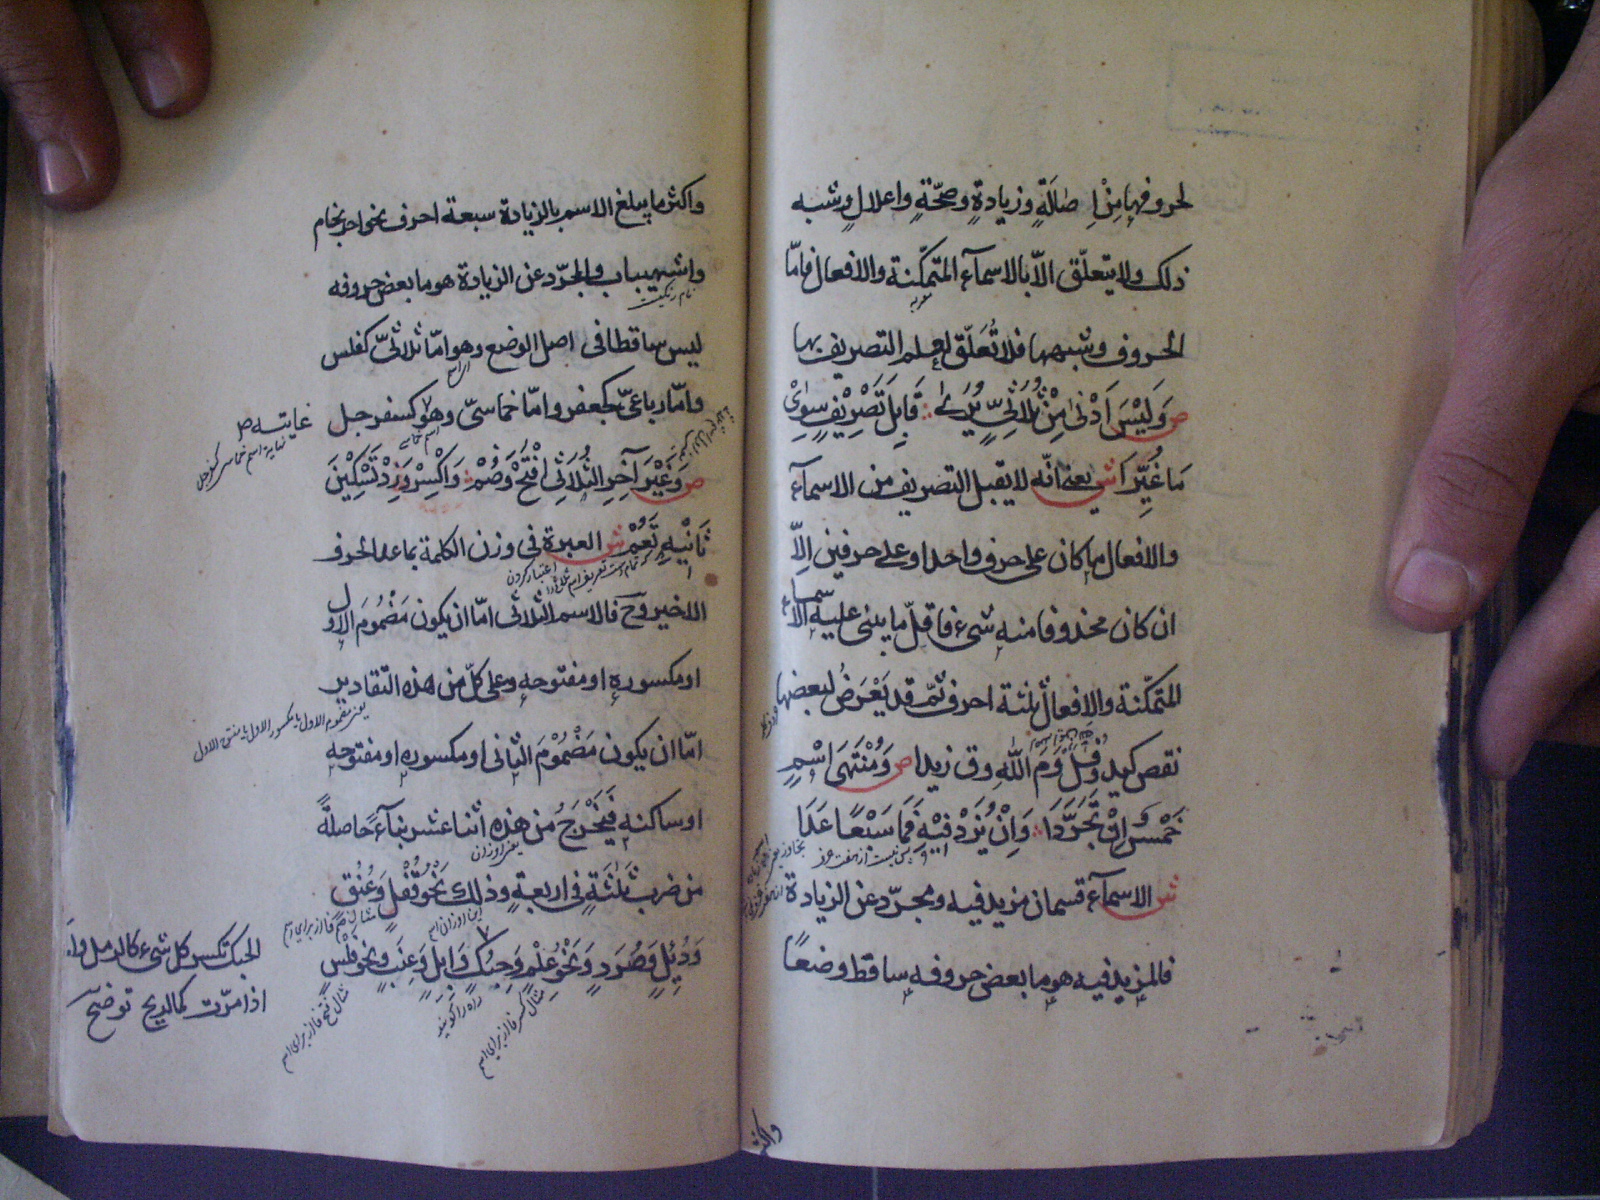 لحروفها مِنْ اِصٰالَةٍ وزيادةٍ وصحّةٍ واعلالٍ وشبه
ذلك ولا يتعلّق الاّ بالاسمآء المتمكّنة والافعال فامّا
الحروف وشبهها فلا تُعلّق لعلم التصريف بها
ص وَلَيْسَ اَدْنىٰ مِنْ ثُلاٰثِىٍّ يُرىٰ قٰابِلَ تَصْرِيْفٍ سِوىٰ
مٰا غُيِّرَا ش يعنے انّه لا يقبل التصريف من الاسمآء
والافعال ما كان على حرف واحد او على حرفين اِلاّ
ان كان محذوفا منه شىء فاقلّ ما يبنى عليه الاسمآء
المتمكّنة والافعال ثلثة احرف ثمّ قد يَعْرَضُ لبعضها
نقص كيد وقُلْ وَمُ اللّٰهِ وق زيدا ص وَمُنْتَهَى اسْمٍ
خَمْسٌ اِنْ تَجَرَّدَا وَاِنْ يُزَدْ فِيْهِ فَمٰا سَبْعًا عَدَا
ش الاسمآء قسمان مزيد فيه ومجرّد عن الزيادة
فالمزيد فيه هو ما بعض حروفه ساقط وضعًا
واكثر
واكثر ما يبلغ الاسم بالزيادة سبعة احرف نحو احرنجام
واشهيباب والمجرّد عن الزيادة هو ما بعض حروفه
ليس ساقطا فى اصل الوضع وهو امّا ثلاثىّ كفلس
وامّا رباعىّ كجعفر وامّا خماسىّ وهو كسفرجل
غايته ص
ص وَغَيْرَ آخِرِ الثُّلاَثِى افْتَحْ وَضُمْ وَاكْسِرْ وَزِدْ تَسْكِيْنَ
ثَانِيْهِ تَعُمْ ش العبرة فى وزن الكلمة بما عدا الحرف
الاخير وح فالاسم الثلاثى امّا ان يكون مَضْمُومَ الاول
او مكسوره او مفتوحه وعلى كلّ من هذه التقادير
يعنے مضموم الاول يا مكسور الاول يا مفتوح الاول
امّا ان يكون مَضْمُوْمَ الثانى او مكسوره او مفتوحه
او ساكنه فَيَخْرَجُ من هذه اثنا عشر بنآءً حاصلةً
من ضرب ثَلٰثَةٍ فى اربعةٍ وذلك نَحْوُ قُفْلٍ وَعُنُقٍ
وَدُئِلٍ وَصُرَدٍ وَنَحْوِ عِلْمٍ وَحِبُكٍ وَاِبِلٍ وَعِنَبٍ وَنحو فَلْسٍ
الحبك تكسر كل شىء كالرمل واء
اذا مرّت به الريح توضيح